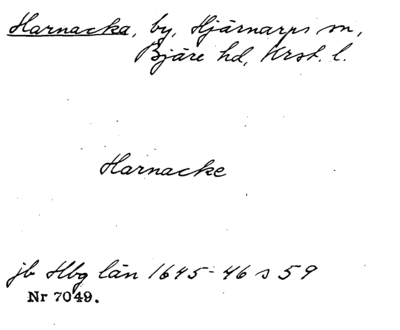 Harnacka, by, Hjärnarps sn,
Bjäre hd, Krst. l.
Harnacke
jb Hbg län 1645-46 s 59
Nr 7049.